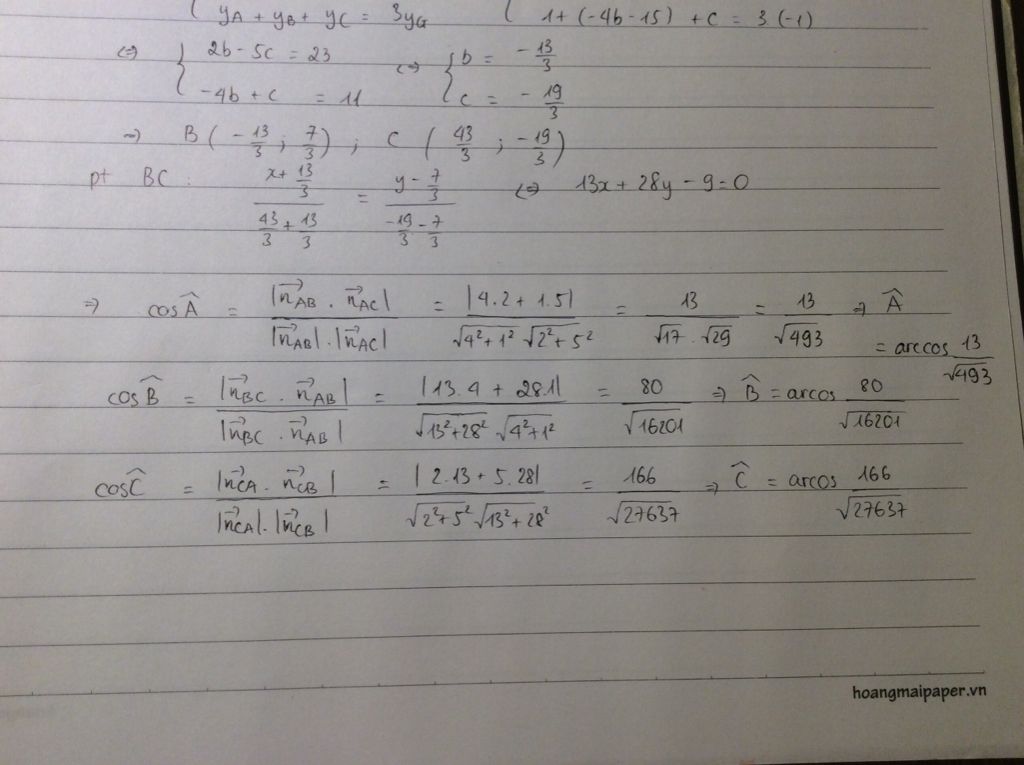 { yA + yB + yC = 3yG { 1 + (-4b - 15) + c = 3 (-1)
<=> { 2b - 5c = 23 <=> { b = -13/3
{ -4b + c = 11 { c = -19/3
=> B ( -13/3 ; 7/3 ) ; C ( 43/3 ; -19/3 )
pt BC : (x + 13/3)/(43/3 + 13/3) = (y - 7/3)/(-19/3 - 7/3) <=> 13x + 28y - 9 = 0
=> cosÂ = |n⃗AB . n⃗AC| / |n⃗AB| . |n⃗AC| = |4.2 + 1.5| / √4²+1² √2²+5² = 13 / √17 . √29 = 13/√493 => Â
= arccos 13/√493
cosB̂ = |n⃗BC . n⃗AB| / |n⃗BC . n⃗AB| = |13.4 + 28.1| / √13²+28² √4²+1² = 80/√16201 => B̂ = arcos 80/√16201
cosĈ = |n⃗CA . n⃗CB| / |n⃗CA| . |n⃗CB| = |2.13 + 5.28| / √2²+5² √13²+28² = 166/√27637 => Ĉ = arcos 166/√27637
hoangmaipaper.vn